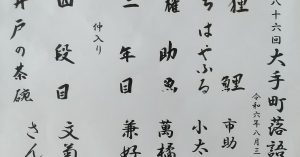 八十六回 大手町落語
令和六年八月三
狸 鯉 市助
ちはやふる 小太
権助魚 萬橘
三年目 兼好
仲入り
四段目 文菊
井戸の茶碗 さん